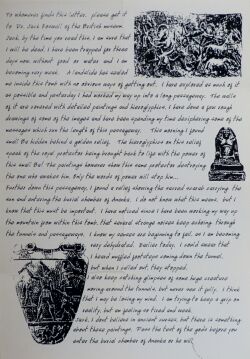 To whomever finds this letter, please get it
to Dr. Jack Boswell of the British museum.
Jack, by the time you read this, I am sure that
I will be dead. I have been trapped for three
days now without food or water and I am
becoming very weak. A landslide has sealed
me inside this tomb with no obvious ways of getting out. I have explored as much of it
as possible and yesterday I had worked my way up into a long passageway. The walls
of it are covered with detailed paintings and hieroglyphics. I have done a few rough
drawings of some of the images and have been spending my time deciphering some of the
messages which run the length of this passageway. This morning I found
small Ba hidden behind a golden relief. The hieroglyphics on this relief
speak of the royal protector being brought back to life with the power of
this small Ba! The paintings however show this same protector destroying
the one who awakes him. Only the words of power will stop him...
Further down this passageway, I found a relief showing the sacred scarab carrying the
sun and entering the burial chamber of Ananka. I do not know what this means, but I
know that this must be important. I have noticed since I have been making my way up
the mountain from within this tomb, that several strange noises keep echoing through
the tunnels and passageways. I know my senses are beginning to fail, as I am becoming
very dehydrated. Earlier today, I could swear that
I heard muffled footsteps coming down the tunnel,
but when I called out, they stopped.
I also keep catching glimpses of some huge creature
moving around the tunnels, but never see it fully. I think
that I may be losing my mind. I am trying to keep a grip on
reality, but am feeling so tired and weak.
Jack, I don't believe in ancient curses, but there is something
about these paintings. Pass the test of the gods before you
enter the burial chamber of Ananka or he will